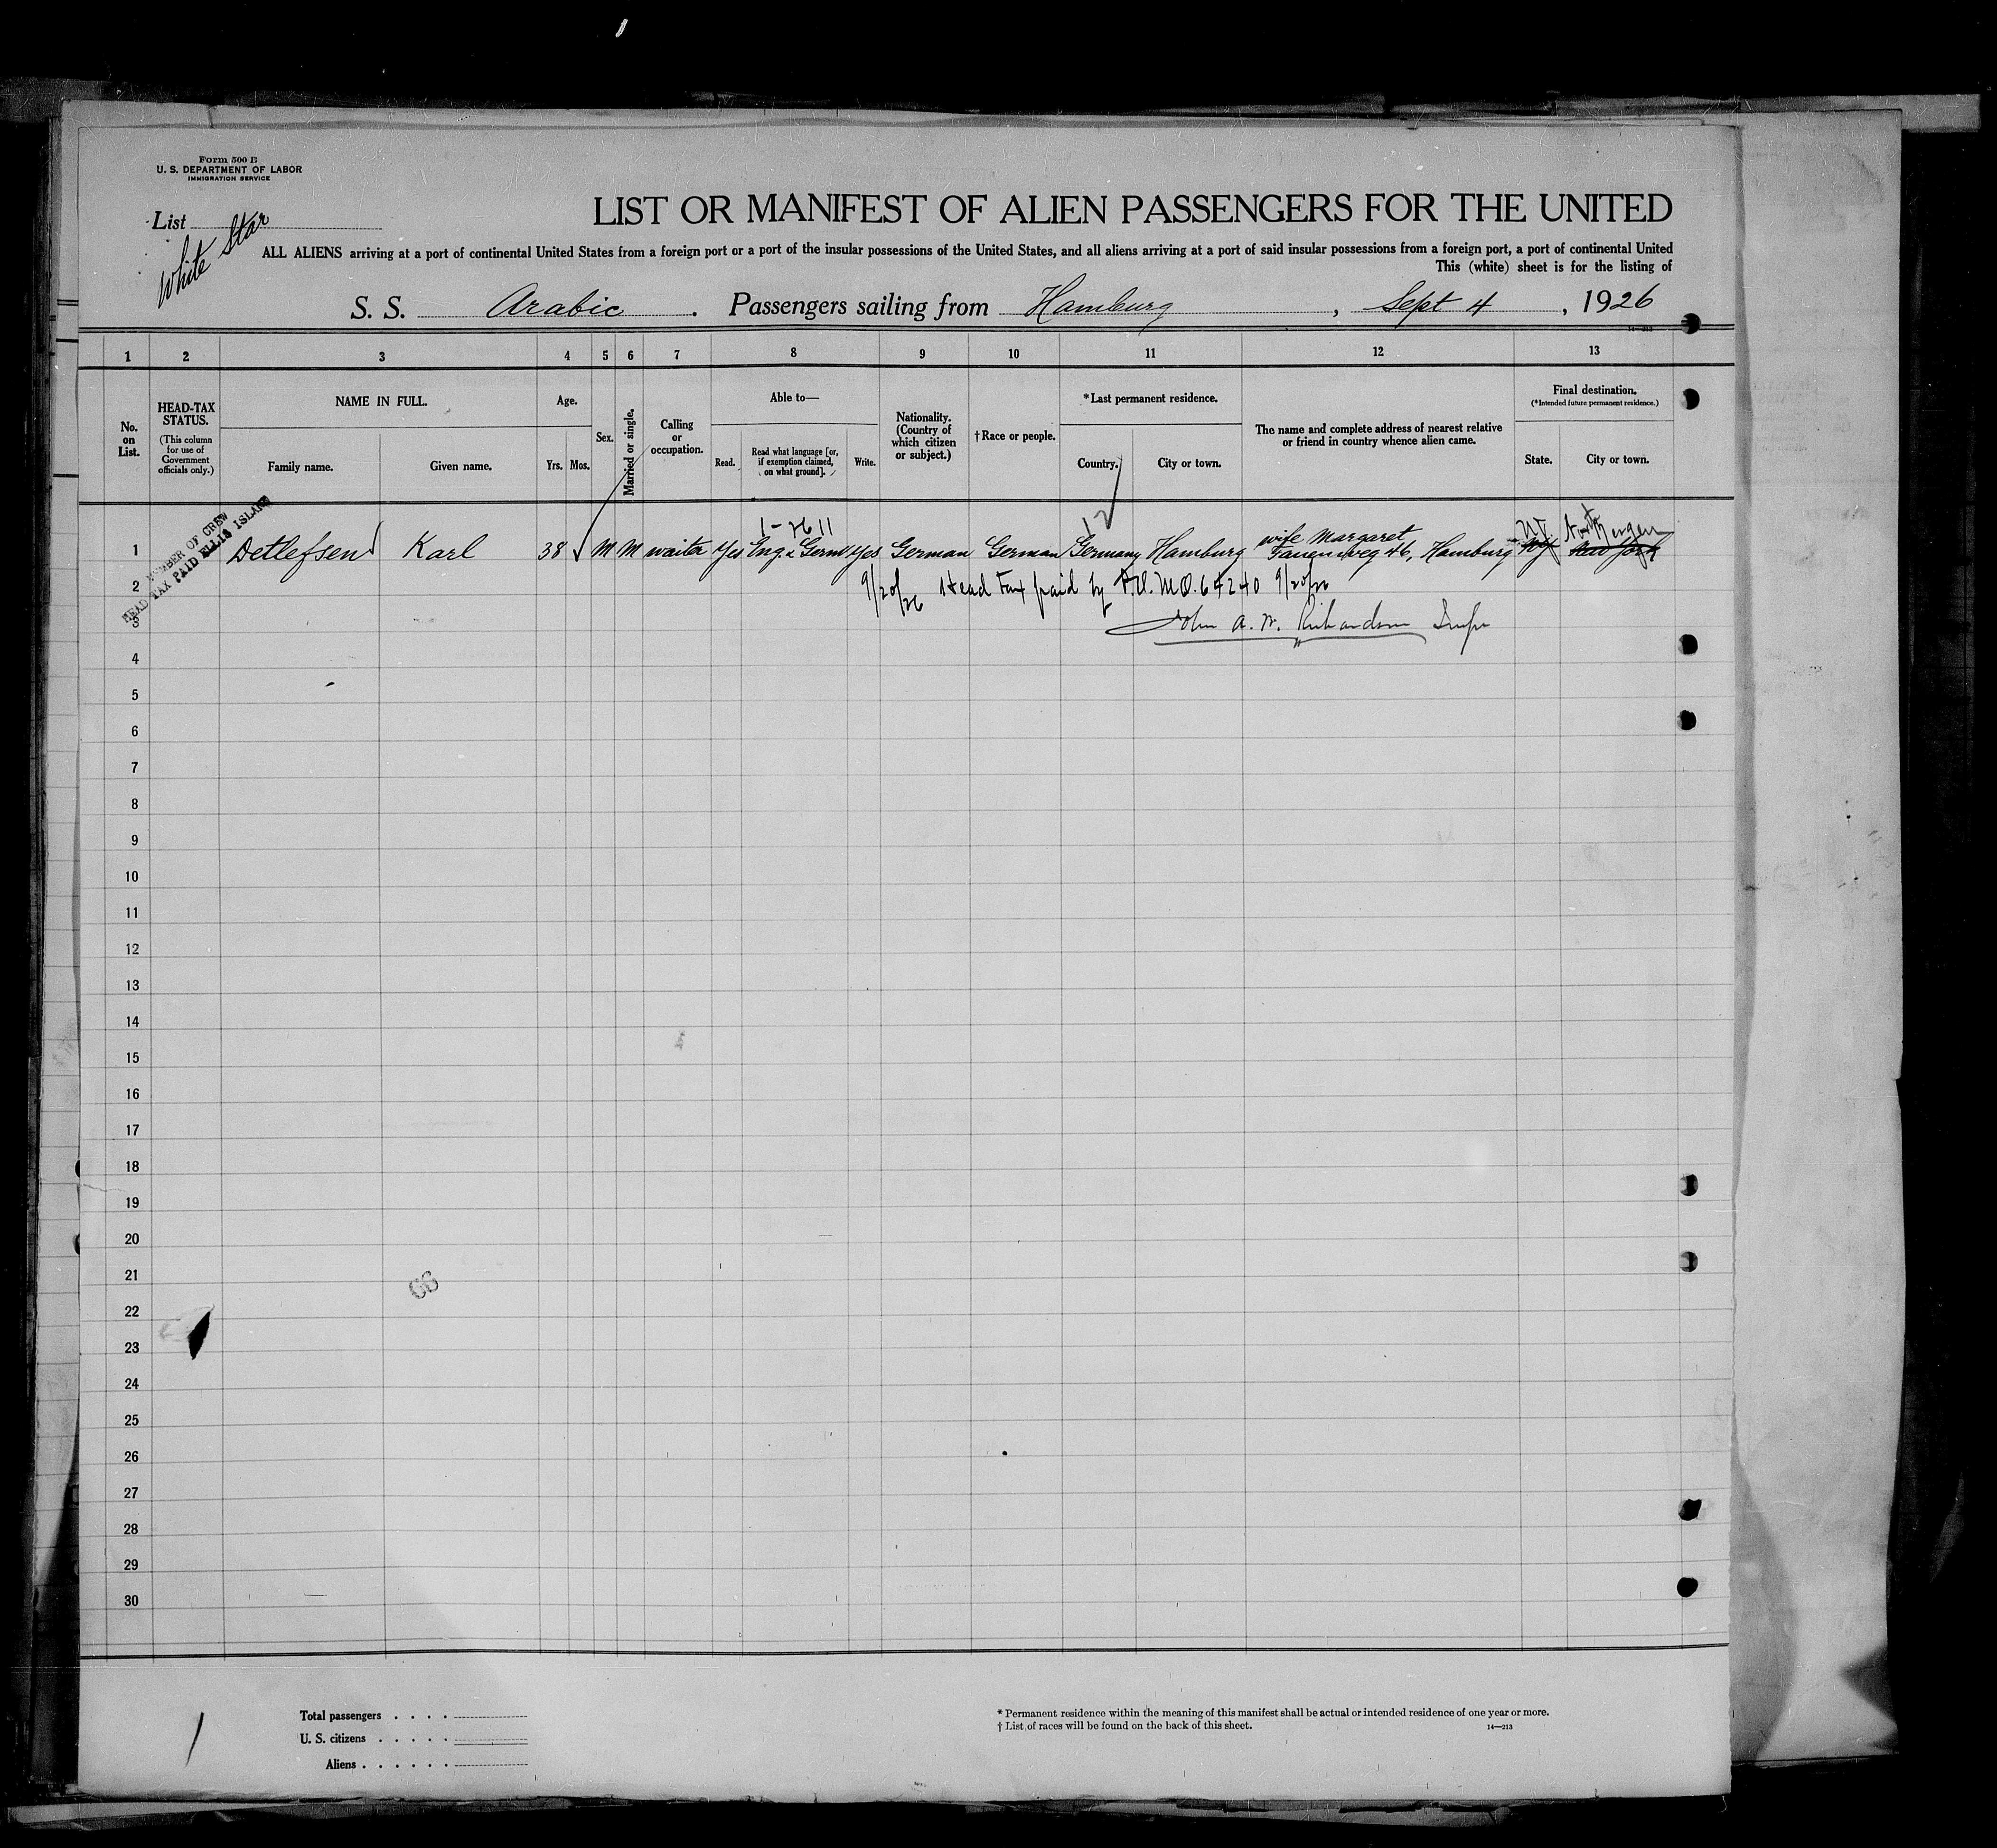 Form 500 B
U. S. DEPARTMENT OF LABOR
IMMIGRATION SERVICE
List
White Star
LIST OR MANIFEST OF ALIEN PASSENGERS FOR THE UNITED
ALL ALIENS arriving at a port of continental United States from a foreign port or a port of the insular possessions of the United States, and all aliens arriving at a port of said insular possessions from a foreign port, a port of continental United
This (white) sheet is for the listing of
S. S. Arabic . Passengers sailing from Hamburg , Sept 4 , 1926
14—213
1 2 3 4 5 6 7 8 9 10 11 12 13
No. on List.
HEAD-TAX STATUS.
(This column for use of Government officials only.)
NAME IN FULL.
Family name. Given name.
Age.
Yrs. Mos.
Sex.
Married or single.
Calling or occupation.
Able to—
Read. Read what language [or, if exemption claimed, on what ground]. Write.
Nationality. (Country of which citizen or subject.)
†Race or people.
*Last permanent residence.
Country. City or town.
The name and complete address of nearest relative or friend in country whence alien came.
Final destination.
(*Intended future permanent residence.)
State. City or town.
MEMBER OF CREW
HEAD TAX PAID ELLIS ISLAND
1-26 11
12
wife Margaret
NJ North Bergen
1 Detlefsen Karl 38 M M waiter Yes Eng. & Germ Yes German German Germany Hamburg 46, Hamburg NY New York
2 9/20/26 Head Tax paid by P.O. M.O. 64240 9/20/26
3 John A. W. Richardson Insp
4
5
6
7
8
9
10
11
12
13
14
15
16
17
18
19
20
21
66
22
23
24
25
26
27
28
29
30
Total passengers . . . .
U. S. citizens . . . . .
Aliens . . . . . .
* Permanent residence within the meaning of this manifest shall be actual or intended residence of one year or more.
† List of races will be found on the back of this sheet.
14—213